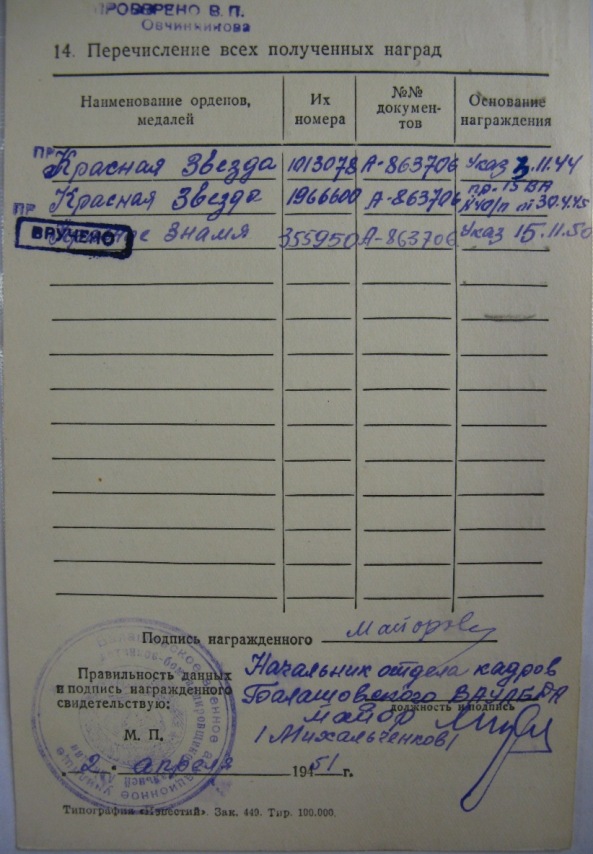 ПРОВЕРЕНО В. П.
Овчинникова
14. Перечисление всех полученных наград
Наименование орденов, медалей
Их номера
№№ документов
Основание награждения
ПР Красная Звезда 1013078 А-863706 Указ 3.11.44
ПР Красная Звезда 1966600 А-863706 пр. 15 ВА №40/п от 30.4.45
ВРУЧЕНО Знамя 355950 А-863706 Указ 15.11.50
Подпись награжденного
Правильность данных Начальник отдела кадров
и подпись награжденного Балашовского
свидетельствую: должность и подпись
майор
М. П. /Михальченков/
2 апреля 1951 г.
Типография «Известий». Зак. 449. Тир. 100.000.